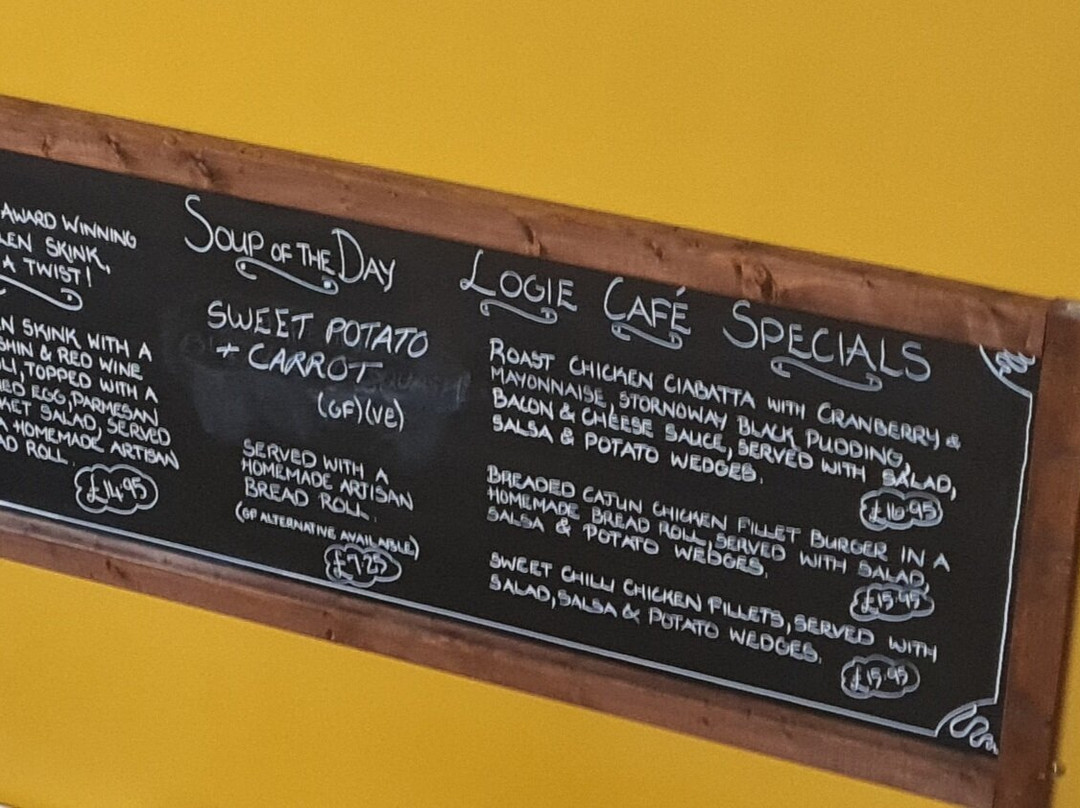 AWARD WINNING
LEN SKINK,
A TWIST!
EN SKINK WITH A
SHIN & RED WINE
LI, TOPPED WITH A
ED EGG, PARMESAN
KET SALAD, SERVED
A HOMEMADE ARTISAN
AD ROLL.
£14.95
SOUP OF THE DAY
SWEET POTATO
+ CARROT
(GF)(VE)
SERVED WITH A
HOMEMADE ARTISAN
BREAD ROLL.
(GF ALTERNATIVE AVAILABLE)
£7.25
LOGIE CAFÉ SPECIALS
ROAST CHICKEN CIABATTA WITH CRANBERRY &
MAYONNAISE, STORNOWAY BLACK PUDDING,
BACON & CHEESE SAUCE, SERVED WITH SALAD,
SALSA & POTATO WEDGES.
£16.95
BREADED CAJUN CHICKEN FILLET BURGER IN A
HOMEMADE BREAD ROLL, SERVED WITH SALAD,
SALSA & POTATO WEDGES.
£15.95
SWEET CHILLI CHICKEN FILLETS, SERVED WITH
SALAD, SALSA & POTATO WEDGES.
£15.95